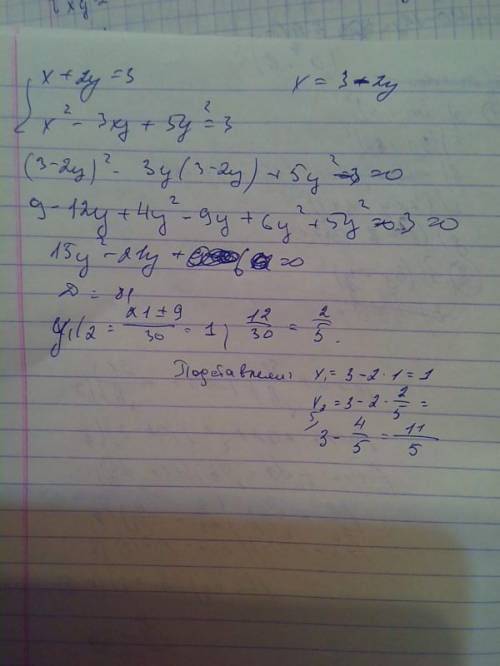 x + 2y = 3    x = 3 - 2y
x² - 3xy + 5y² = 3
(3-2y)² - 3y(3-2y) + 5y² - 3 = 0
9 - 12y + 4y² - 9y + 6y² + 5y² - 3 = 0
15y² - 21y + 6 = 0
D = 81
y₁/₂ = (21 ± 9)/30 = 1, 12/30 = 2/5.
Подставляем: x₁ = 3 - 2·1 = 1
x₂ = 3 - 2·2/5 =
3 - 4/5 = 11/5